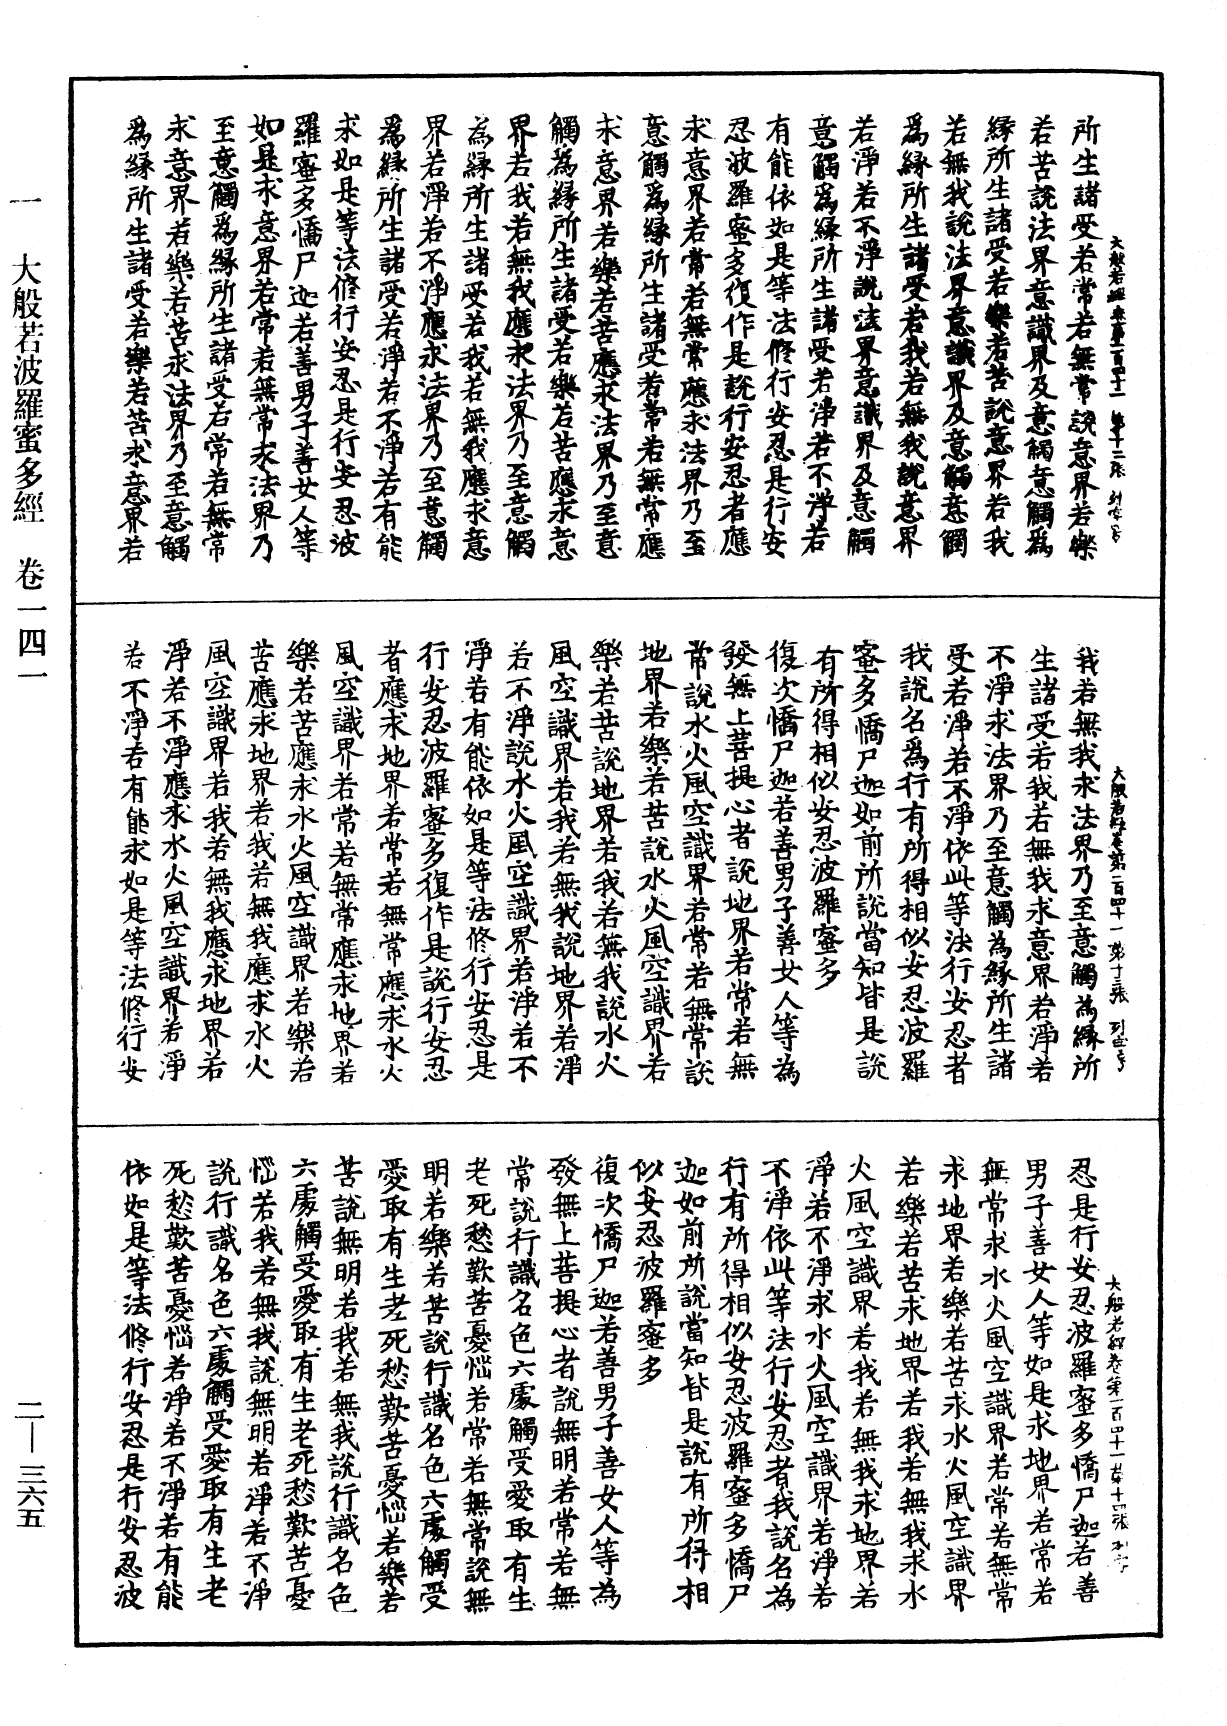 大般若經卷第一百四十一 第十二張
所生諸受若常若無常說意界若樂
若苦說法界意識界及意觸意觸爲
緣所生諸受若樂若苦說意界若我
若無我說法界意識界及意觸意觸
爲緣所生諸受若我若無我說意界
若淨若不淨說法界意識界及意觸
意觸爲緣所生諸受若淨若不淨若
有能依如是等法修行安忍是行安
忍波羅蜜多復作是說行安忍者應
求意界若常若無常應求法界乃至
意觸爲緣所生諸受若常若無常應
求意界若樂若苦應求法界乃至意
觸爲緣所生諸受若樂若苦應求意
界若我若無我應求法界乃至意觸
爲緣所生諸受若我若無我應求意
界若淨若不淨應求法界乃至意觸
爲緣所生諸受若淨若不淨若有能
求如是等法修行安忍是行安忍波
羅蜜多憍尸迦若善男子善女人等
如是求意界若常若無常求法界乃
至意觸爲緣所生諸受若常若無常
求意界若樂若苦求法界乃至意觸
爲緣所生諸受若樂若苦求意界若
大般若經卷第一百四十一 第十三張
我若無我求法界乃至意觸為緣所
生諸受若我若無我求意界若淨若
不淨求法界乃至意觸為緣所生諸
受若淨若不淨依此等法行安忍者
我說名爲行有所得相似安忍波羅
蜜多憍尸迦如前所說當知皆是說
有所得相似安忍波羅蜜多
復次憍尸迦若善男子善女人等為
發無上菩提心者說地界若常若無
常說水火風空識界若常若無常說
地界若樂若苦說水火風空識界若
樂若苦說地界若我若無我說水火
風空識界若我若無我說地界若淨
若不淨說水火風空識界若淨若不
淨若有能依如是等法修行安忍是
行安忍波羅蜜多復作是說行安忍
者應求地界若常若無常應求水火
風空識界若常若無常應求地界若
樂若苦應求水火風空識界若樂若
苦應求地界若我若無我應求水火
風空識界若我若無我應求地界若
淨若不淨應求水火風空識界若淨
若不淨若有能求如是等法修行安
大般若經卷第一百四十一 第十四張
忍是行安忍波羅蜜多憍尸迦若善
男子善女人等如是求地界若常若
無常求水火風空識界若常若無常
求地界若樂若苦求水火風空識界
若樂若苦求地界若我若無我求水
火風空識界若我若無我求地界若
淨若不淨求水火風空識界若淨若
不淨依此等法行安忍者我說名為
行有所得相似安忍波羅蜜多憍尸
迦如前所說當知皆是說有所得相
似安忍波羅蜜多
復次憍尸迦若善男子善女人等為
發無上菩提心者說無明若常若無
常說行識名色六處觸受愛取有生
老死愁歎苦憂惱若常若無常說無
明若樂若苦說行識名色六處觸受
愛取有生老死愁歎苦憂惱若樂若
苦說無明若我若無我說行識名色
六處觸受愛取有生老死愁歎苦憂
惱若我若無我說無明若淨若不淨
說行識名色六處觸受愛取有生老
死愁歎苦憂惱若淨若不淨若有能
依如是等法修行安忍是行安忍波
一 大般若波羅蜜多經 卷一四一
二—三六五